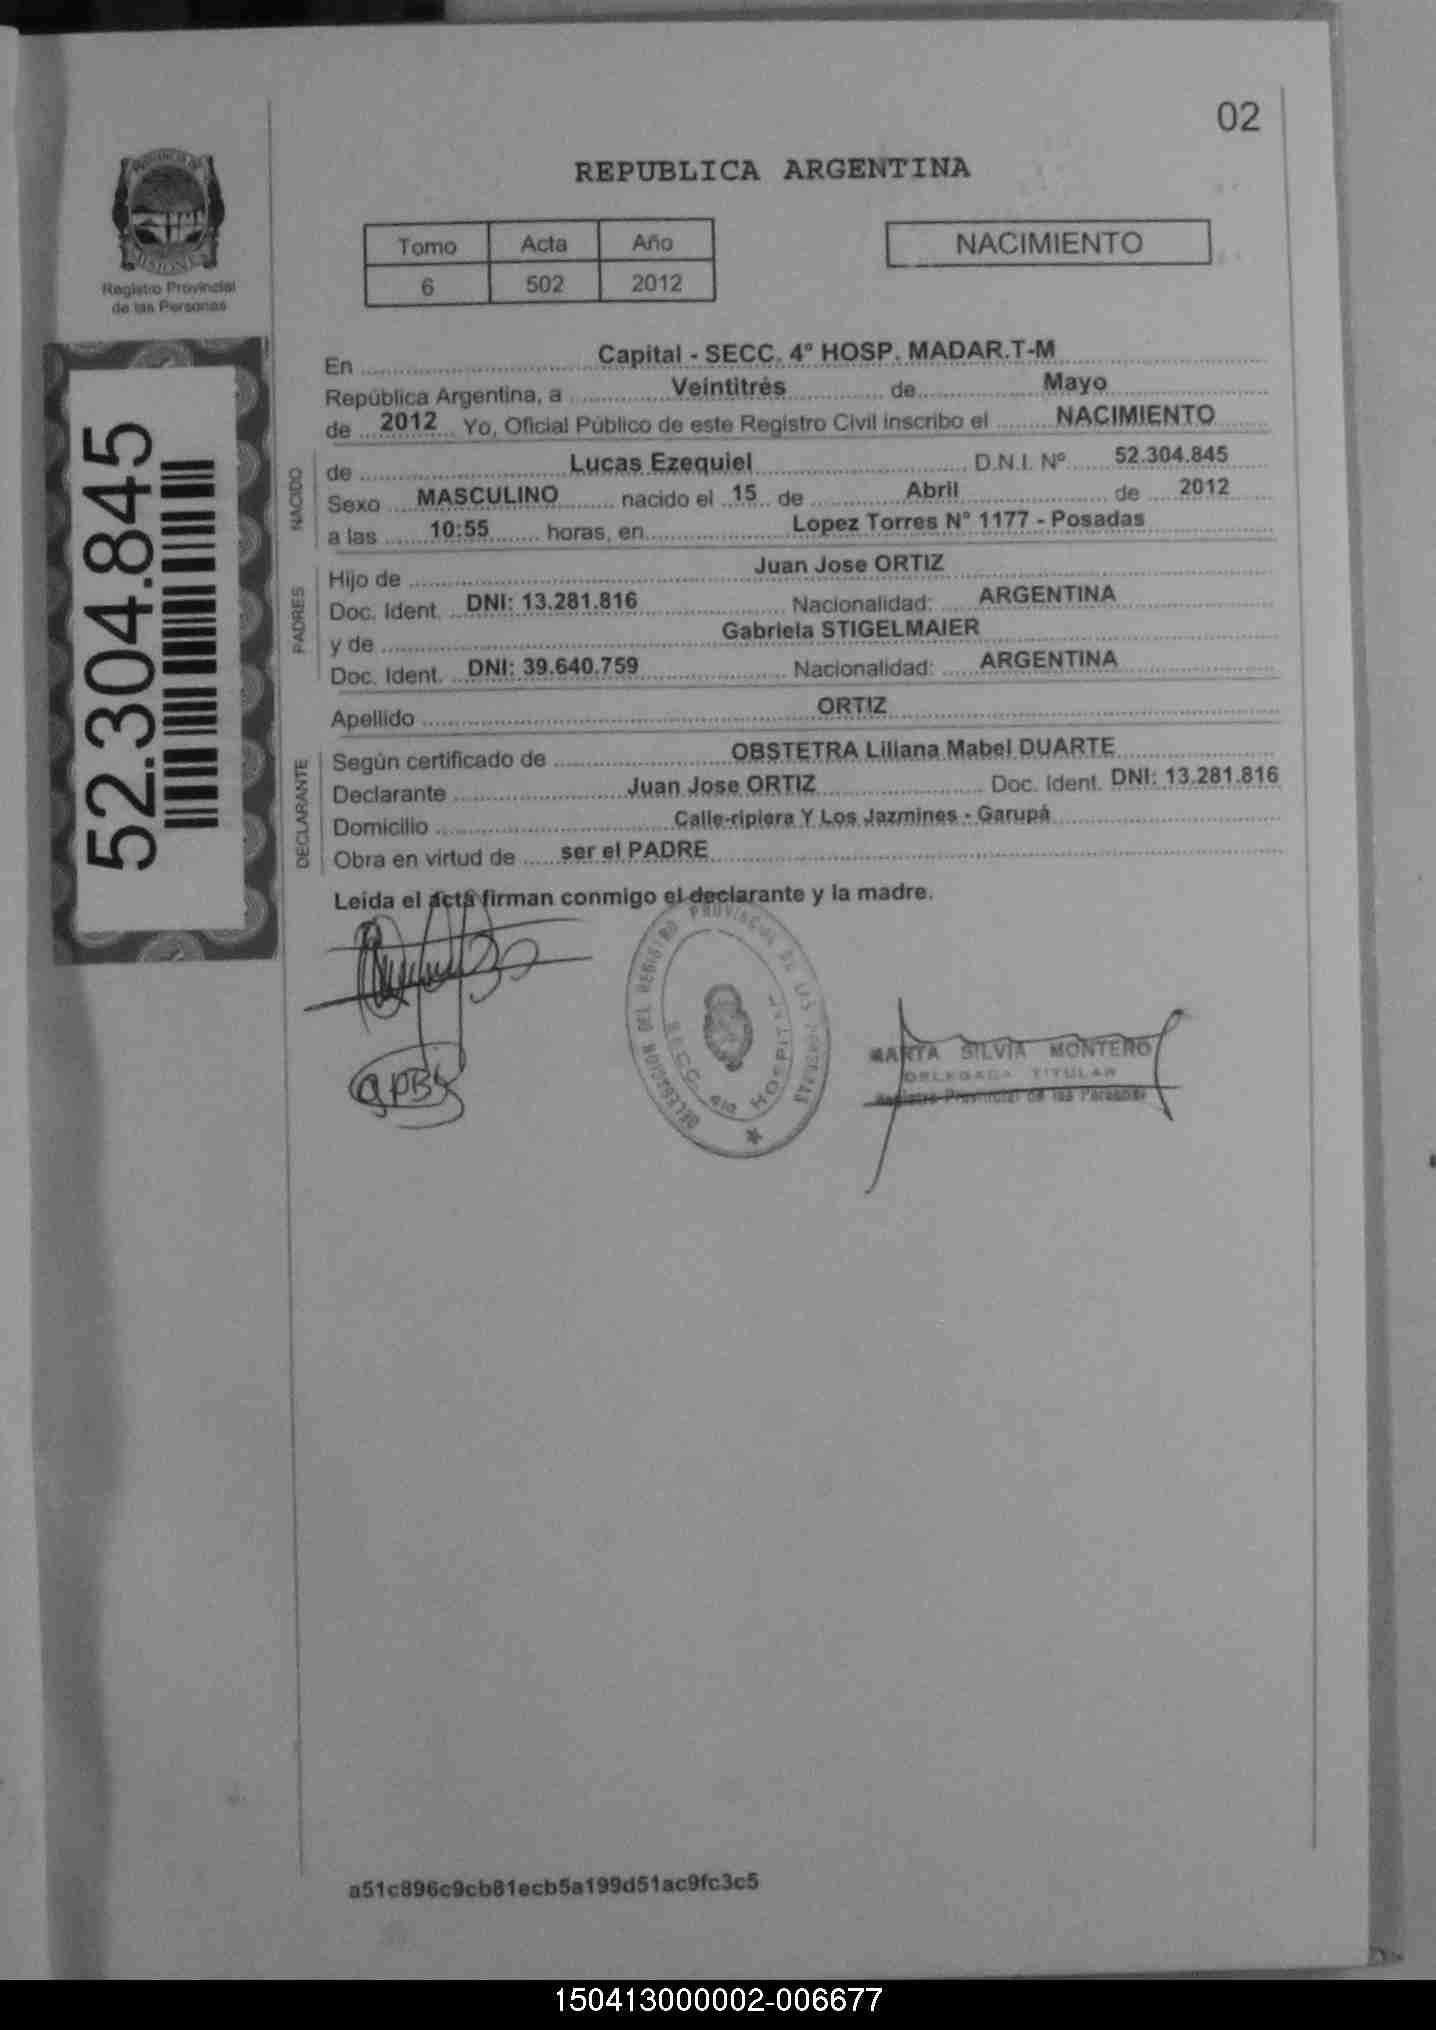 02
PROVINCIA DE
MISIONES
Registro Provincial
de las Personas
REPUBLICA ARGENTINA
Tomo Acta Año
6 502 2012
NACIMIENTO
52.304.845
En Capital - SECC. 4º HOSP. MADAR.T-M
República Argentina, a Veintitrés de Mayo
de 2012 Yo, Oficial Público de este Registro Civil inscribo el NACIMIENTO
NACIDO
de Lucas Ezequiel D.N.I. Nº 52.304.845
Sexo MASCULINO nacido el 15 de Abril de 2012
a las 10:55 horas, en Lopez Torres N° 1177 - Posadas
PADRES
Hijo de Juan Jose ORTIZ
Doc. Ident. DNI: 13.281.816 Nacionalidad: ARGENTINA
y de Gabriela STIGELMAIER
Doc. Ident. DNI: 39.640.759 Nacionalidad: ARGENTINA
Apellido ORTIZ
DECLARANTE
Según certificado de OBSTETRA Liliana Mabel DUARTE
Declarante Juan Jose ORTIZ Doc. Ident. DNI: 13.281.816
Domicilio Calle-ripiera Y Los Jazmines - Garupá
Obra en virtud de ser el PADRE
Leída el acta firman conmigo el declarante y la madre.
DELEGACION DEL REGISTRO PROVINCIAL DE LAS PERSONAS
SECC. 4to HOSPITAL
MARTA SILVIA MONTERO
DELEGADA TITULAR
Registro Provincial de las Personas
a51c896c9cb81ecb5a199d51ac9fc3c5
150413000002-006677